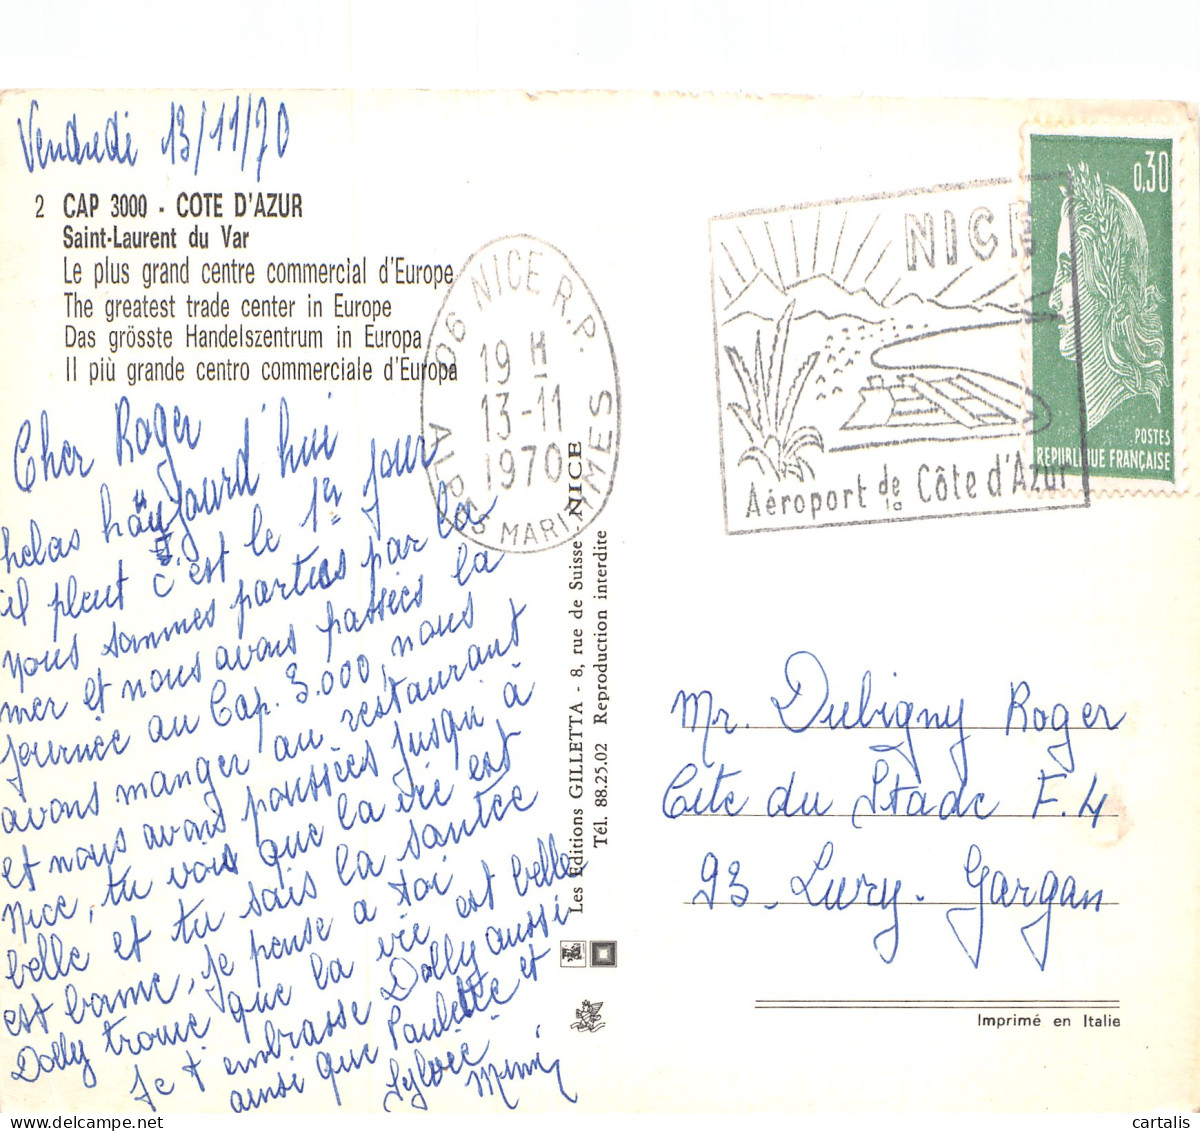 Vendredi 13/11/70
2 CAP 3000 - COTE D'AZUR
Saint-Laurent du Var
Le plus grand centre commercial d'Europe
The greatest trade center in Europe
Das grösste Handelszentrum in Europa
Il più grande centro commerciale d'Europa
Cher Roger
helas haujourd'hui
il pleut c'est le 1er jour
nous sommes parties par la
mer et nous avons passées la
journée au Cap. 3.000, nous
avons manger au restaurant
et nous avons poussées jusqu'à
Nice, tu vois que la vie est
belle et tu sais la santée
est bonne, je pense a toi
Dolly trouve que la vie est belle
Je t'embrasse Dolly aussi
ainsi que Paulette et
Sylvie
Mimi
06 NICE R.P.
19 H
13-11
1970
ALPES MARITIMES
Les Editions GILLETTA - 8, rue de Suisse - NICE
Tél. 88.25.02 Reproduction interdite
NICE
Aéroport de la Côte d'Azur
0,30
POSTES
REPUBLIQUE FRANÇAISE
Mr. Dubigny Roger
Cite du Stade F.4
93 - Livry - Gargan
Imprimé en Italie
cartalis